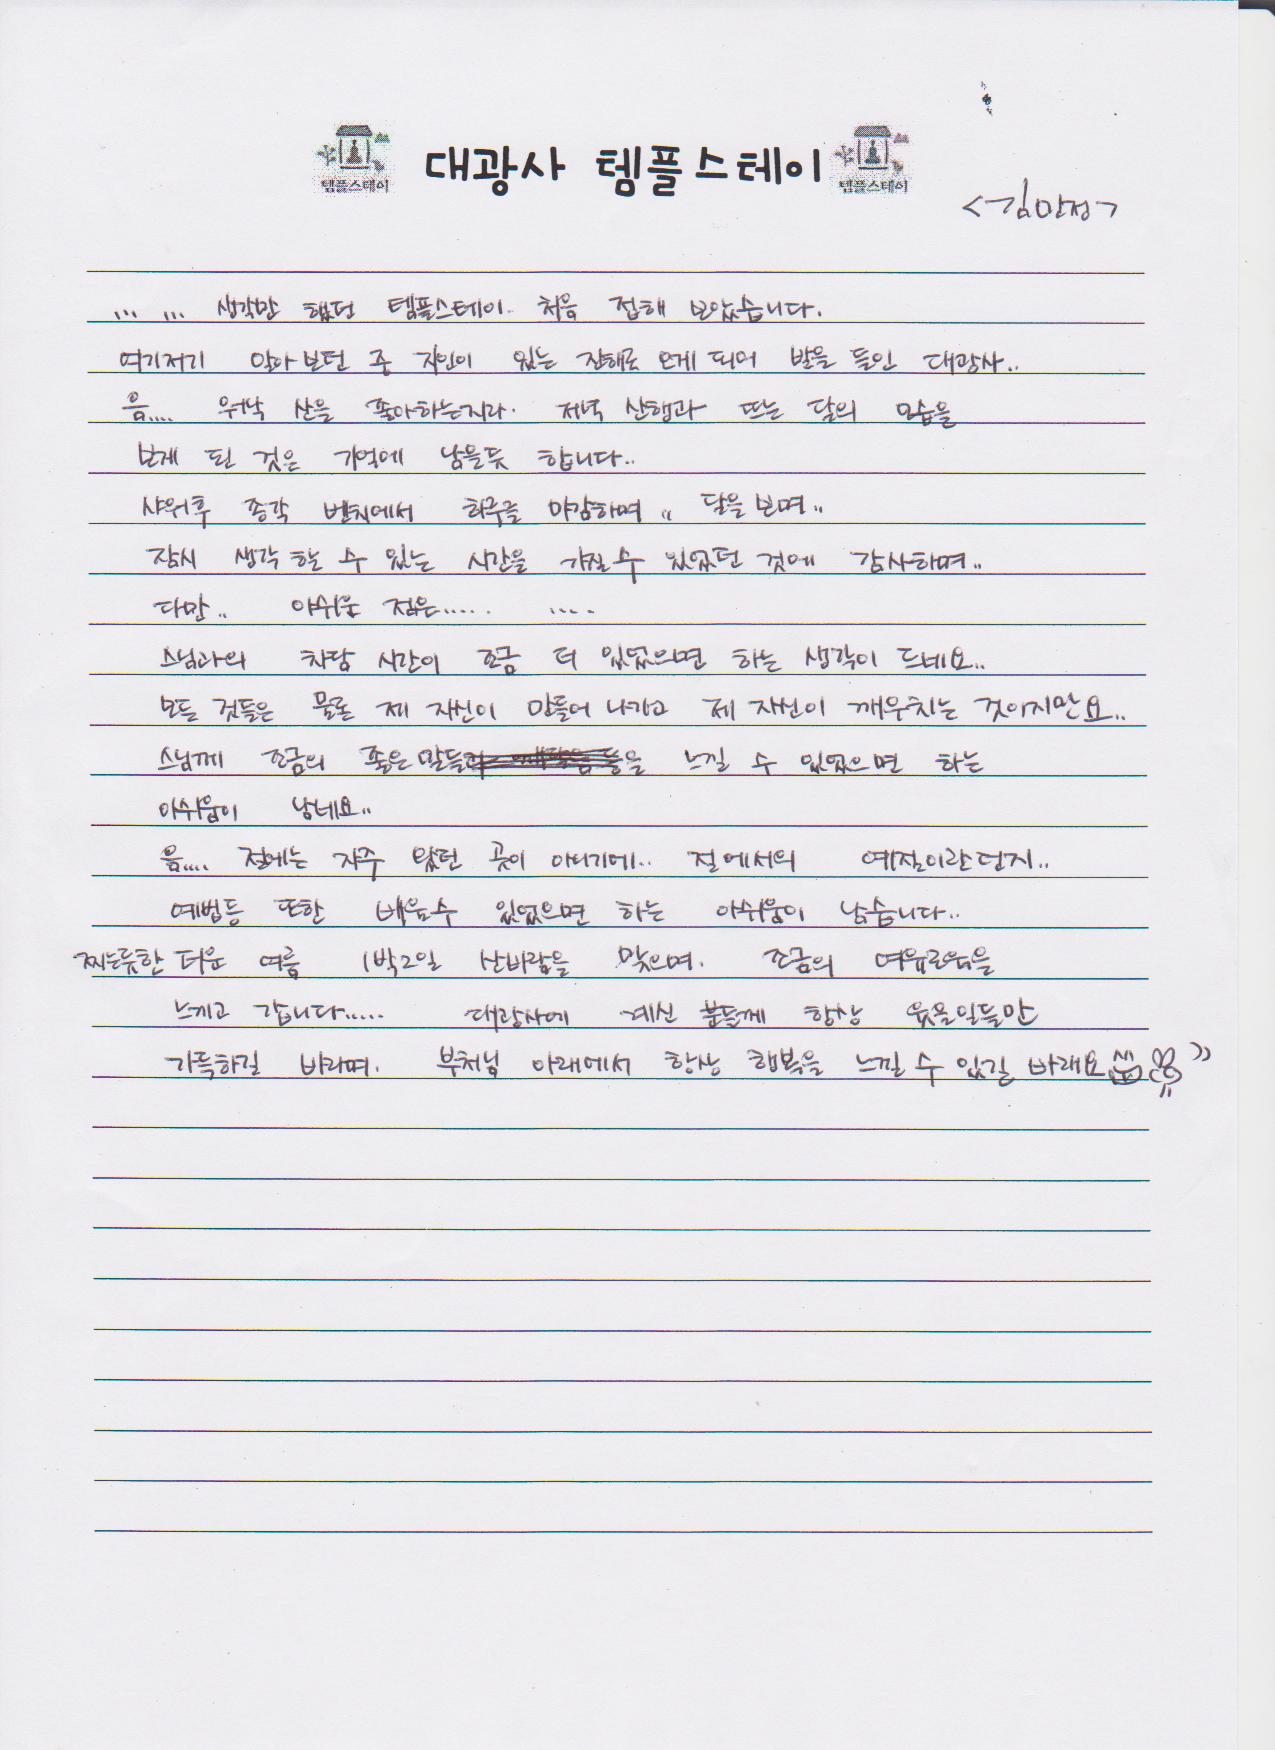 템플스테이 대광사 템플스테이 템플스테이
<김만정>
... ... 생각만 했던 템플스테이.. 처음 접해 보았습니다.
여기저기 알아보던 중 지인이 있는 진해로 오게 되어 발을 들인 대광사..
음.... 워낙 산을 좋아하는지라. 저녁 산행과 뜨는 달의 모습을
보게 된 것은 기억에 남을듯 합니다..
샤워후 종각 벤치에서 하루를 마감하며.. 달을 보며..
잠시 생각 하는 수 있는 시간을 가질수 있었던 것에 감사하며..
다만.. 아쉬운 점은..... ....
스님과의 차담 시간이 조금 더 있었으면 하는 생각이 드네요..
모든 것들은 물론 제 자신이 만들어 나가고 제 자신이 깨우치는 것이지만요..
스님께 조금의 좋은 말들을 느낄 수 있었으면 하는
아쉬움이 남네요..
음.... 절에는 자주 왔던 곳이 아니기에.. 절에서의 예절이란던지..
예법등 또한 배울수 있었으면 하는 아쉬움이 남습니다..
찌는듯한 더운 여름 1박2일 산바람을 맞으며. 조금의 여유로움을
느끼고 갑니다..... 대광사에 계신 분들께 항상 웃을일들만
가득하길 바라며. 부처님 아래에서 항상 행복을 느낄 수 있길 바래요